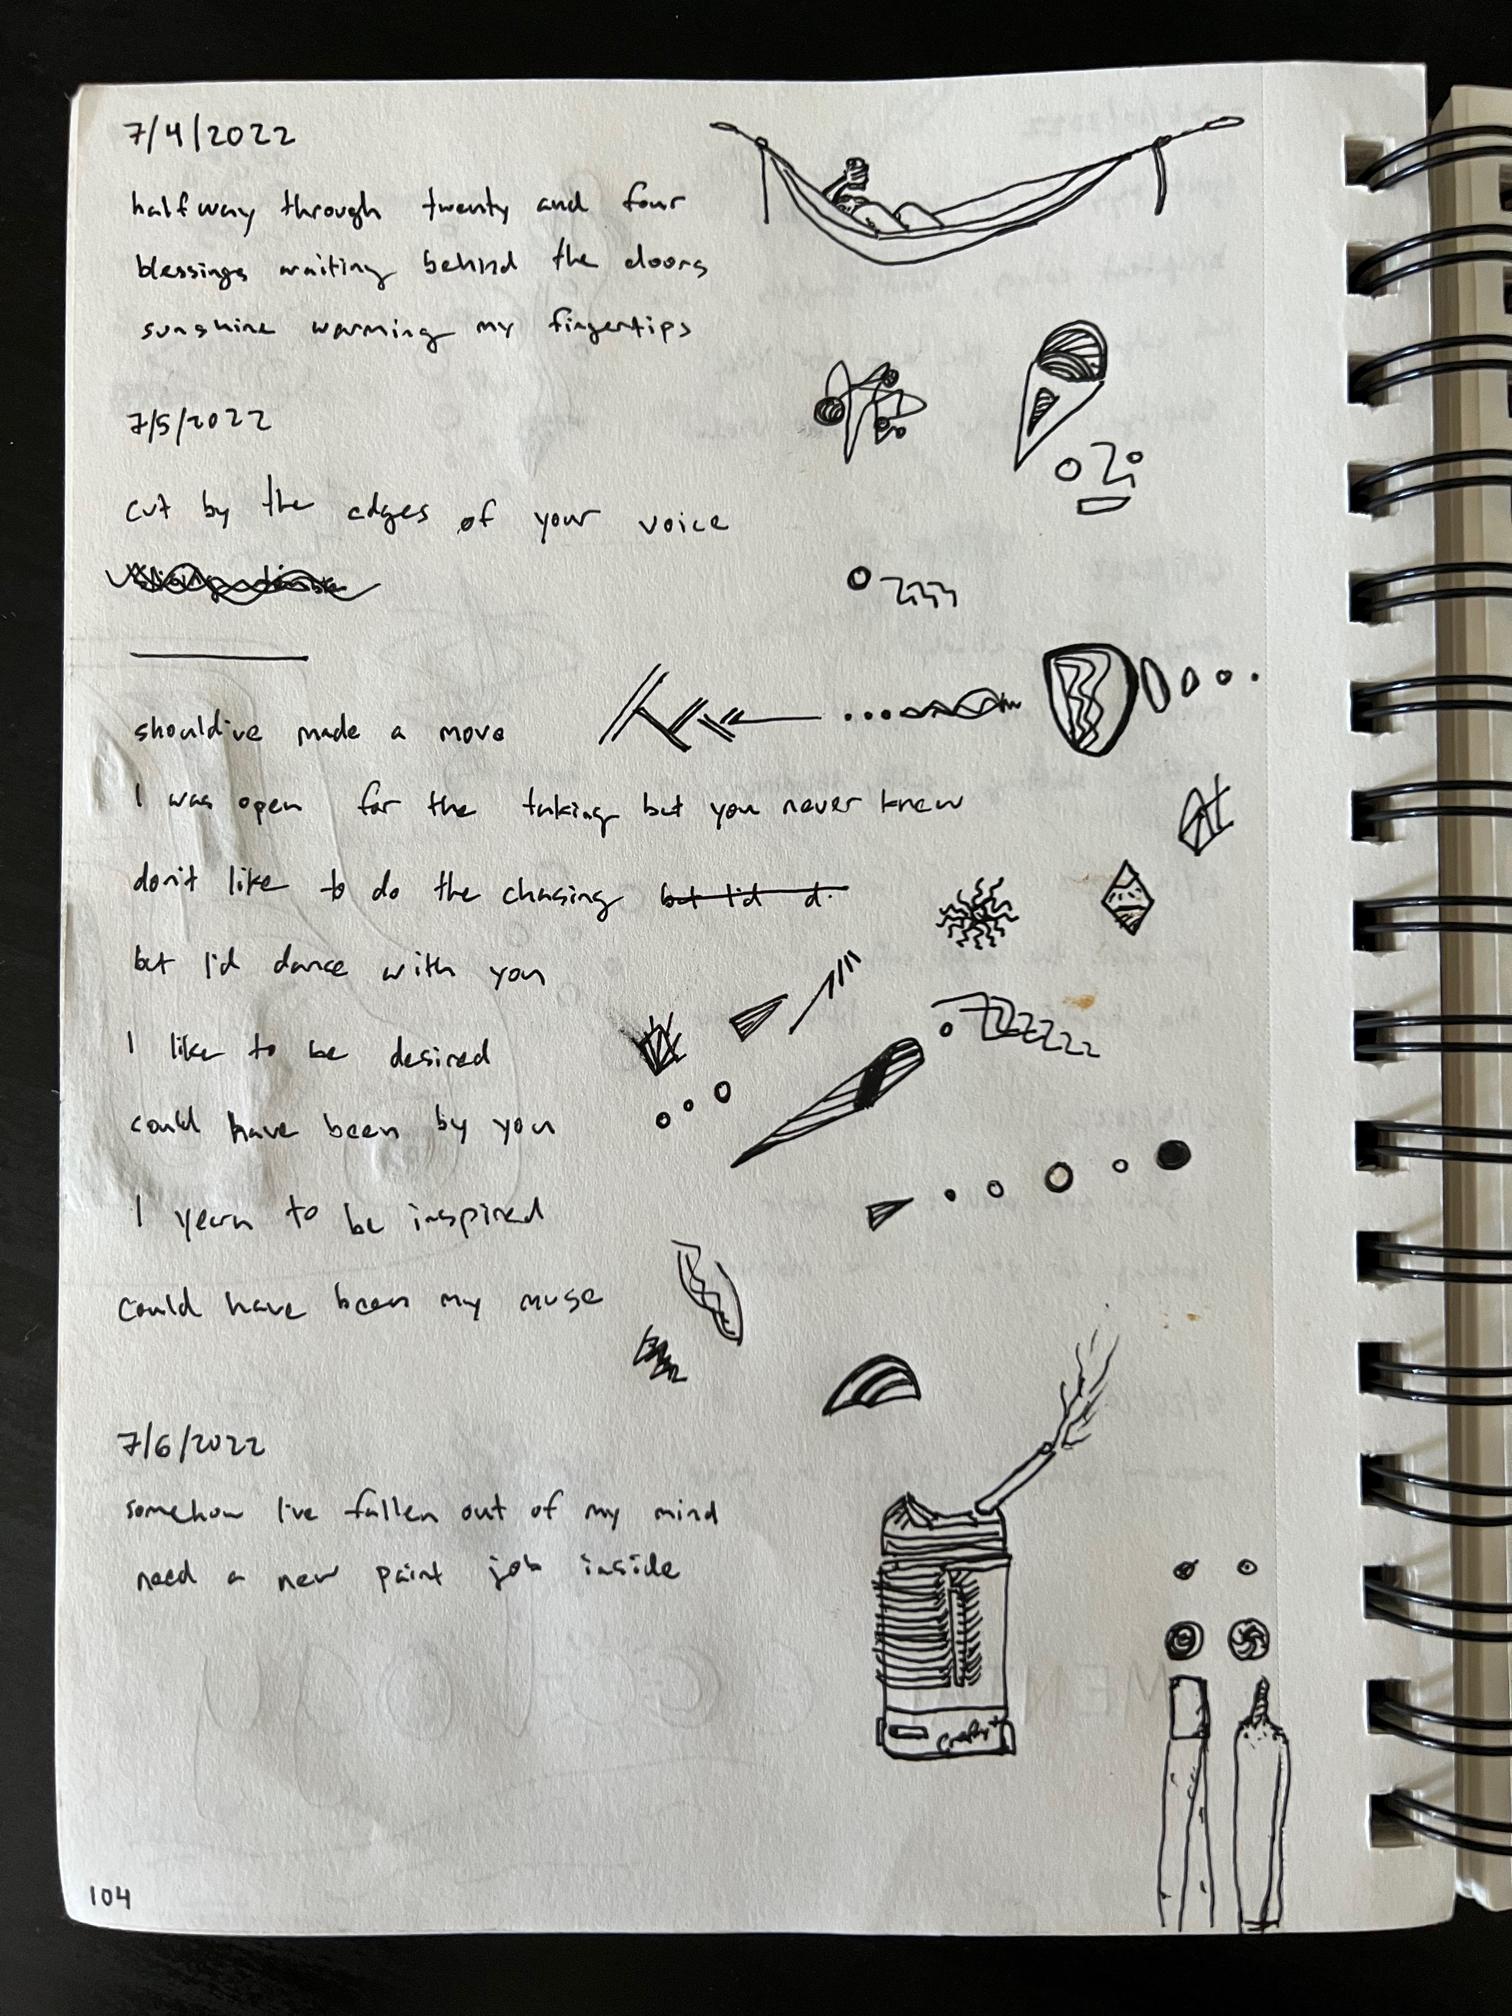 7/4/2022
halfway through twenty and four
blessings waiting behind the doors
sunshine warming my fingertips
7/5/2022
cut by the edges of your voice
should've made a move
I was open for the taking but you never knew
don't like to do the chasing but I'd d
but I'd dance with you
I like to be desired
could have been by you
I yearn to be inspired
could have been my muse
7/6/2022
somehow I've fallen out of my mind
need a new paint job inside
Crafty+
104